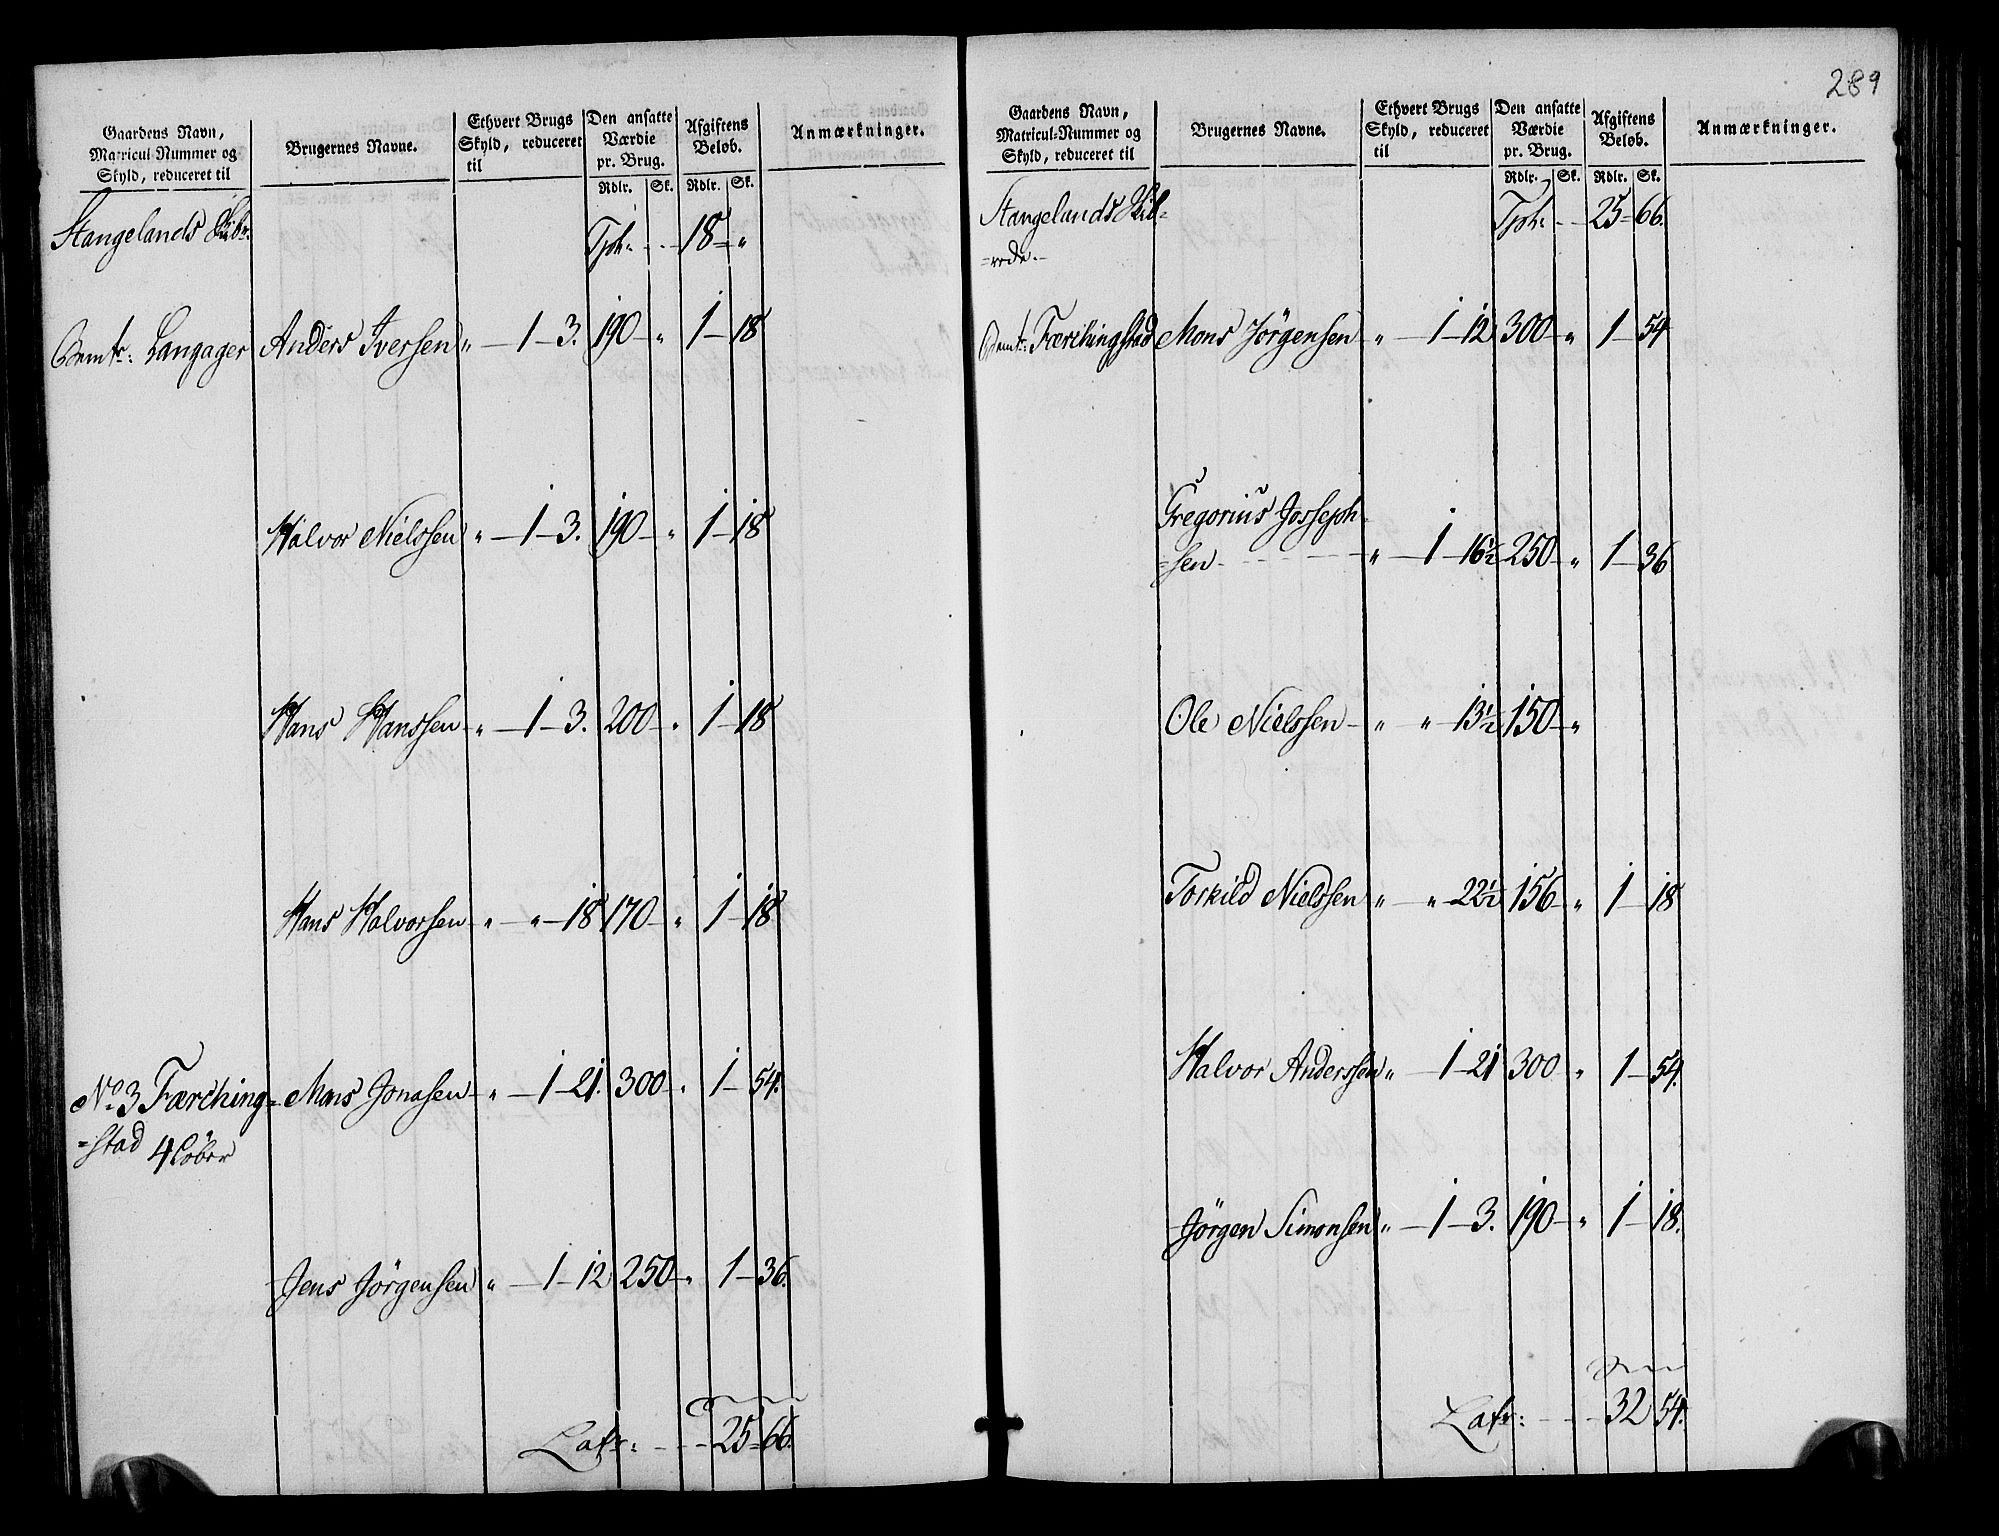 289
Gaardens Navn,
Matricul-Nummer og
Skyld, reduceret til
Brugernes Navne.
Ethvert Brugs
Skyld, reduceret
til
Den ansatte
Værdie
pr. Brug.
Rdlr. Sk.
Afgiftens
Beløb.
Rdlr. Sk.
Anmærkninger.
Stangelands Skibr.
Tpt: 18 "
Bemte: Langager Anders Iversen " 1 3. 190 " 1 18
Halvor Nielssen " 1 3. 190 " 1 18
Hans Hanssen " 1 3. 200 " 1 18
Hans Halvorsen " " 18 170 " 1 18
No. 3 Færching= Mons Jonasen " 1 21. 300 " 1 54.
=stad 4 Løber
Jens Jørgensen " 1 12 250 " 1 36.
Latr: 25 66.
Gaardens Navn,
Matricul-Nummer og
Skyld, reduceret til
Brugernes Navne.
Ethvert Brugs
Skyld, reduceret
til
Den ansatte
Værdie
pr. Brug.
Rdlr. Sk.
Afgiftens
Beløb.
Rdlr. Sk.
Anmærkninger.
Stangelands Skib=
=rede.
Tpt: 25 66.
Bemte: Færchingstad Mons Jørgensen " 1 12 300 " 1 54
Gregorius Josseph=
=sen " 1 16½ 250 " 1 36
Ole Nielssen " " 13½ 150 "
Torkild Nielssen " " 22½ 156 " 1 18
Halvor Anderssen " 1 21 300 " 1 54.
Jørgen Simonsen " 1 3. 190 " 1 18.
Latr: 32 54.